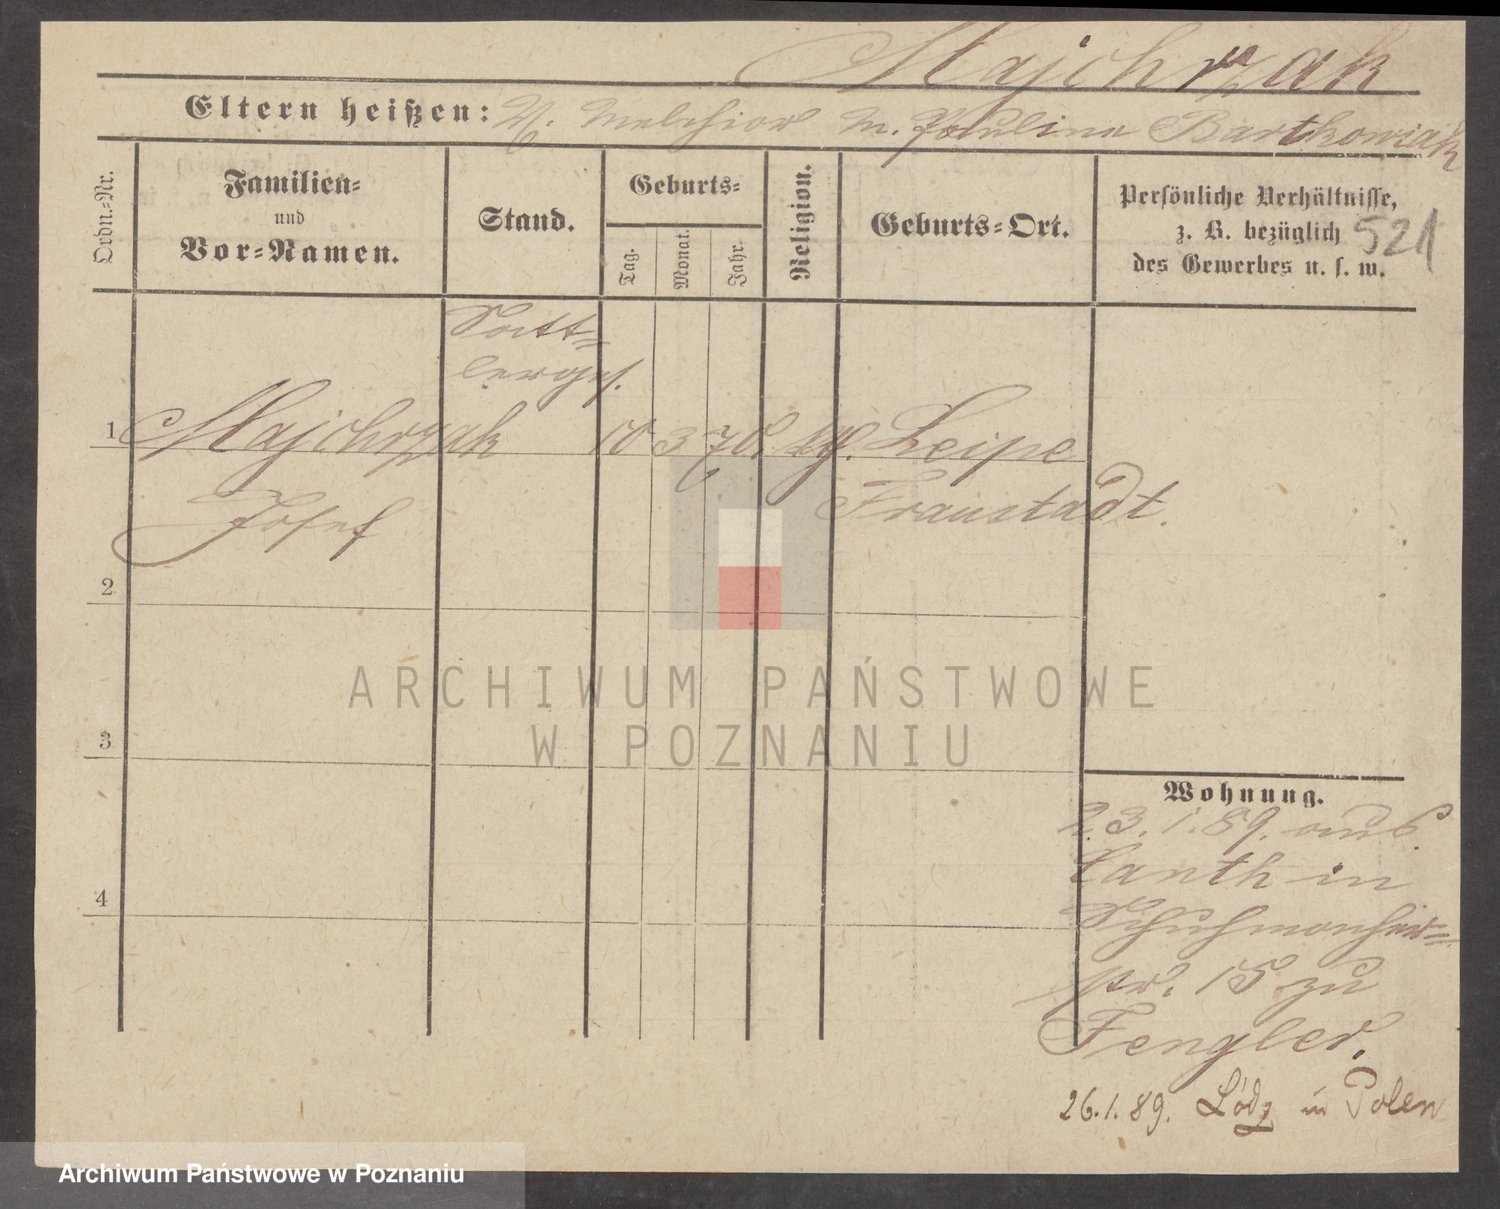 Majchrzak
Eltern heißen: V. Melchior M. Paulina Bartkowiak
Ordn.-Nr.
Familien-
und
Vor-Namen.
Stand.
Geburts-
Tag.
Monat.
Jahr.
Religion.
Geburts-Ort.
Persönliche Verhältnisse,
z. B. bezüglich
des Gewerbes u. s. w.
521
Satt-
lerges.
1 Majchrzak 10 3 70 kgl. Leipe
Josef Fraustadt.
2
3
4
Wohnung.
23.1.89. aus
Canth in
Schuhmacher-
str. 15 zu
Fengler.
26.1.89. Lódz in Polen
ARCHIWUM PAŃSTWOWE
W POZNANIU
Archiwum Państwowe w Poznaniu